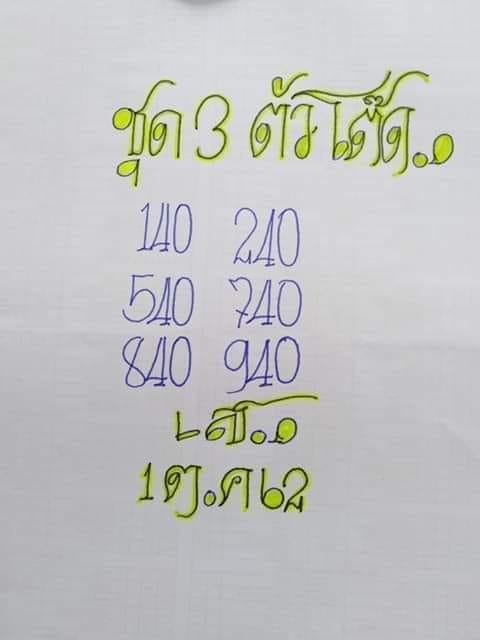 ชุด 3 ตัวโต๊ด..
140 240
540 740
840 940
1 ต.ค 62